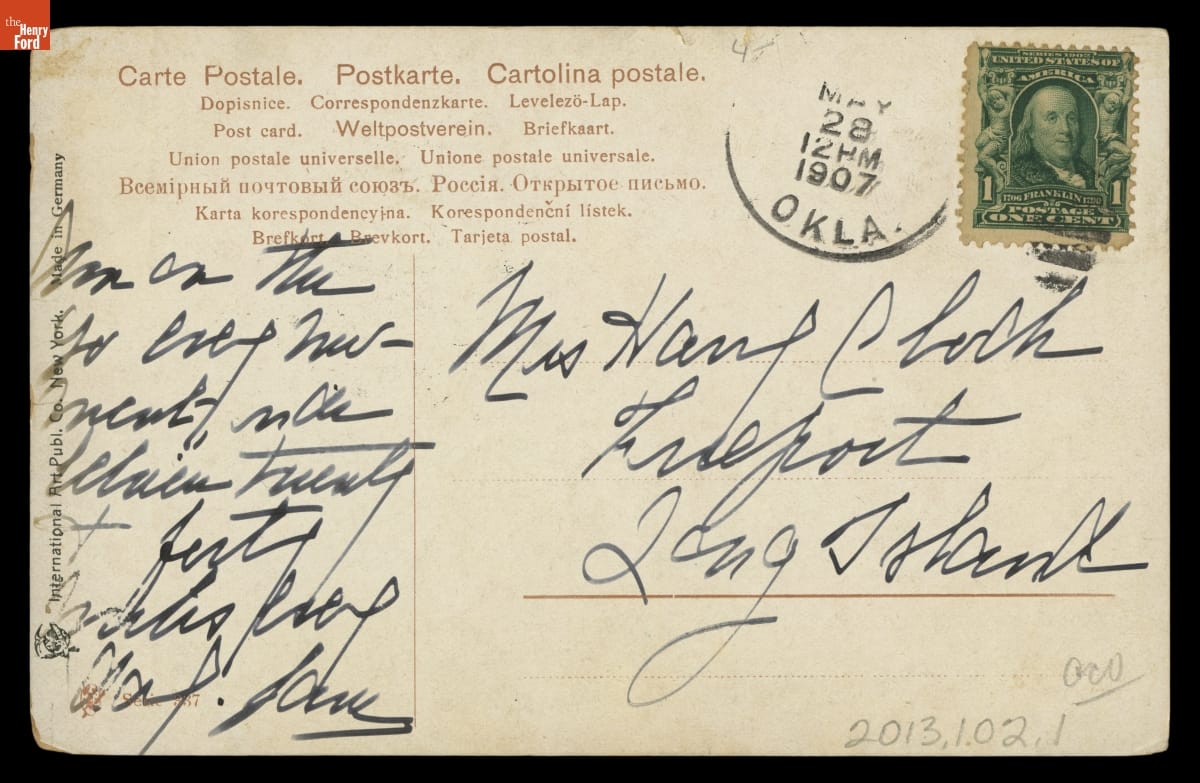 the Henry Ford
Carte Postale. Postkarte. Cartolina postale.
Dopisnice. Correspondenzkarte. Levelezö-Lap.
Post card. Weltpostverein. Briefkaart.
Union postale universelle. Unione postale universale.
Всемірный почтовый союзъ. Россія. Открытое письмо.
Karta korespondencyjna. Korespondenční lístek.
Brefkort. Brevkort. Tarjeta postal.
MAY
28
12 PM
1907
OKLA.
SERIES 1902
UNITED STATES OF
AMERICA
1 1706 FRANKLIN 1790 1
POSTAGE
ONE CENT
International Art Publ. Co. New York. Made in Germany
on the
go every
ment, ride
twenty
forty
miles every
day. Sam
Serie 337
Mrs Harry Clock
Freeport
Long Island
2013.1.02.1